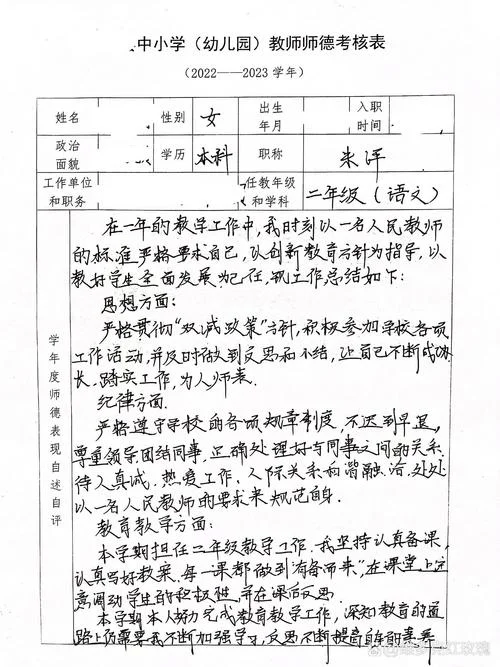 中小学（幼儿园）教师师德考核表
（2022——2023学年）
姓名 性别 女 出生年月 入职时间
政治面貌 学历 本科 职称 未评
工作单位和职务 任教年级和学科 二年级（语文）
学年度师德表现自述自评
在一年的教学工作中，我时刻以一名人民教师
的标准严格要求自己，以创新教育方针为指导，以
教好学生全面发展为己任，现工作总结如下：
思想方面：
严格贯彻“双减政策”方针，积极参加学校各项
工作活动，并及时做到反思和小结，让自己不断成
长，踏实工作，为人师表．
纪律方面．
严格遵守学校的各项规章制度，不迟到早退，
尊重领导团结同事，正确处理好与同事之间的关系．
待人真诚，热爱工作，人际关系和谐融洽，处处
以一名人民教师的要求来规范自身．
教育教学方面：
本学期担任二年级教学工作．我坚持认真备课，
认真写好教案．每一课都做到“有备而来”，在课堂上注
意调动学生的积极性，并在课后反思．
本学期本人努力完成教育教学工作，深知教育的道
路上仍需要我不断加强学习，反思不断提高自身的素养